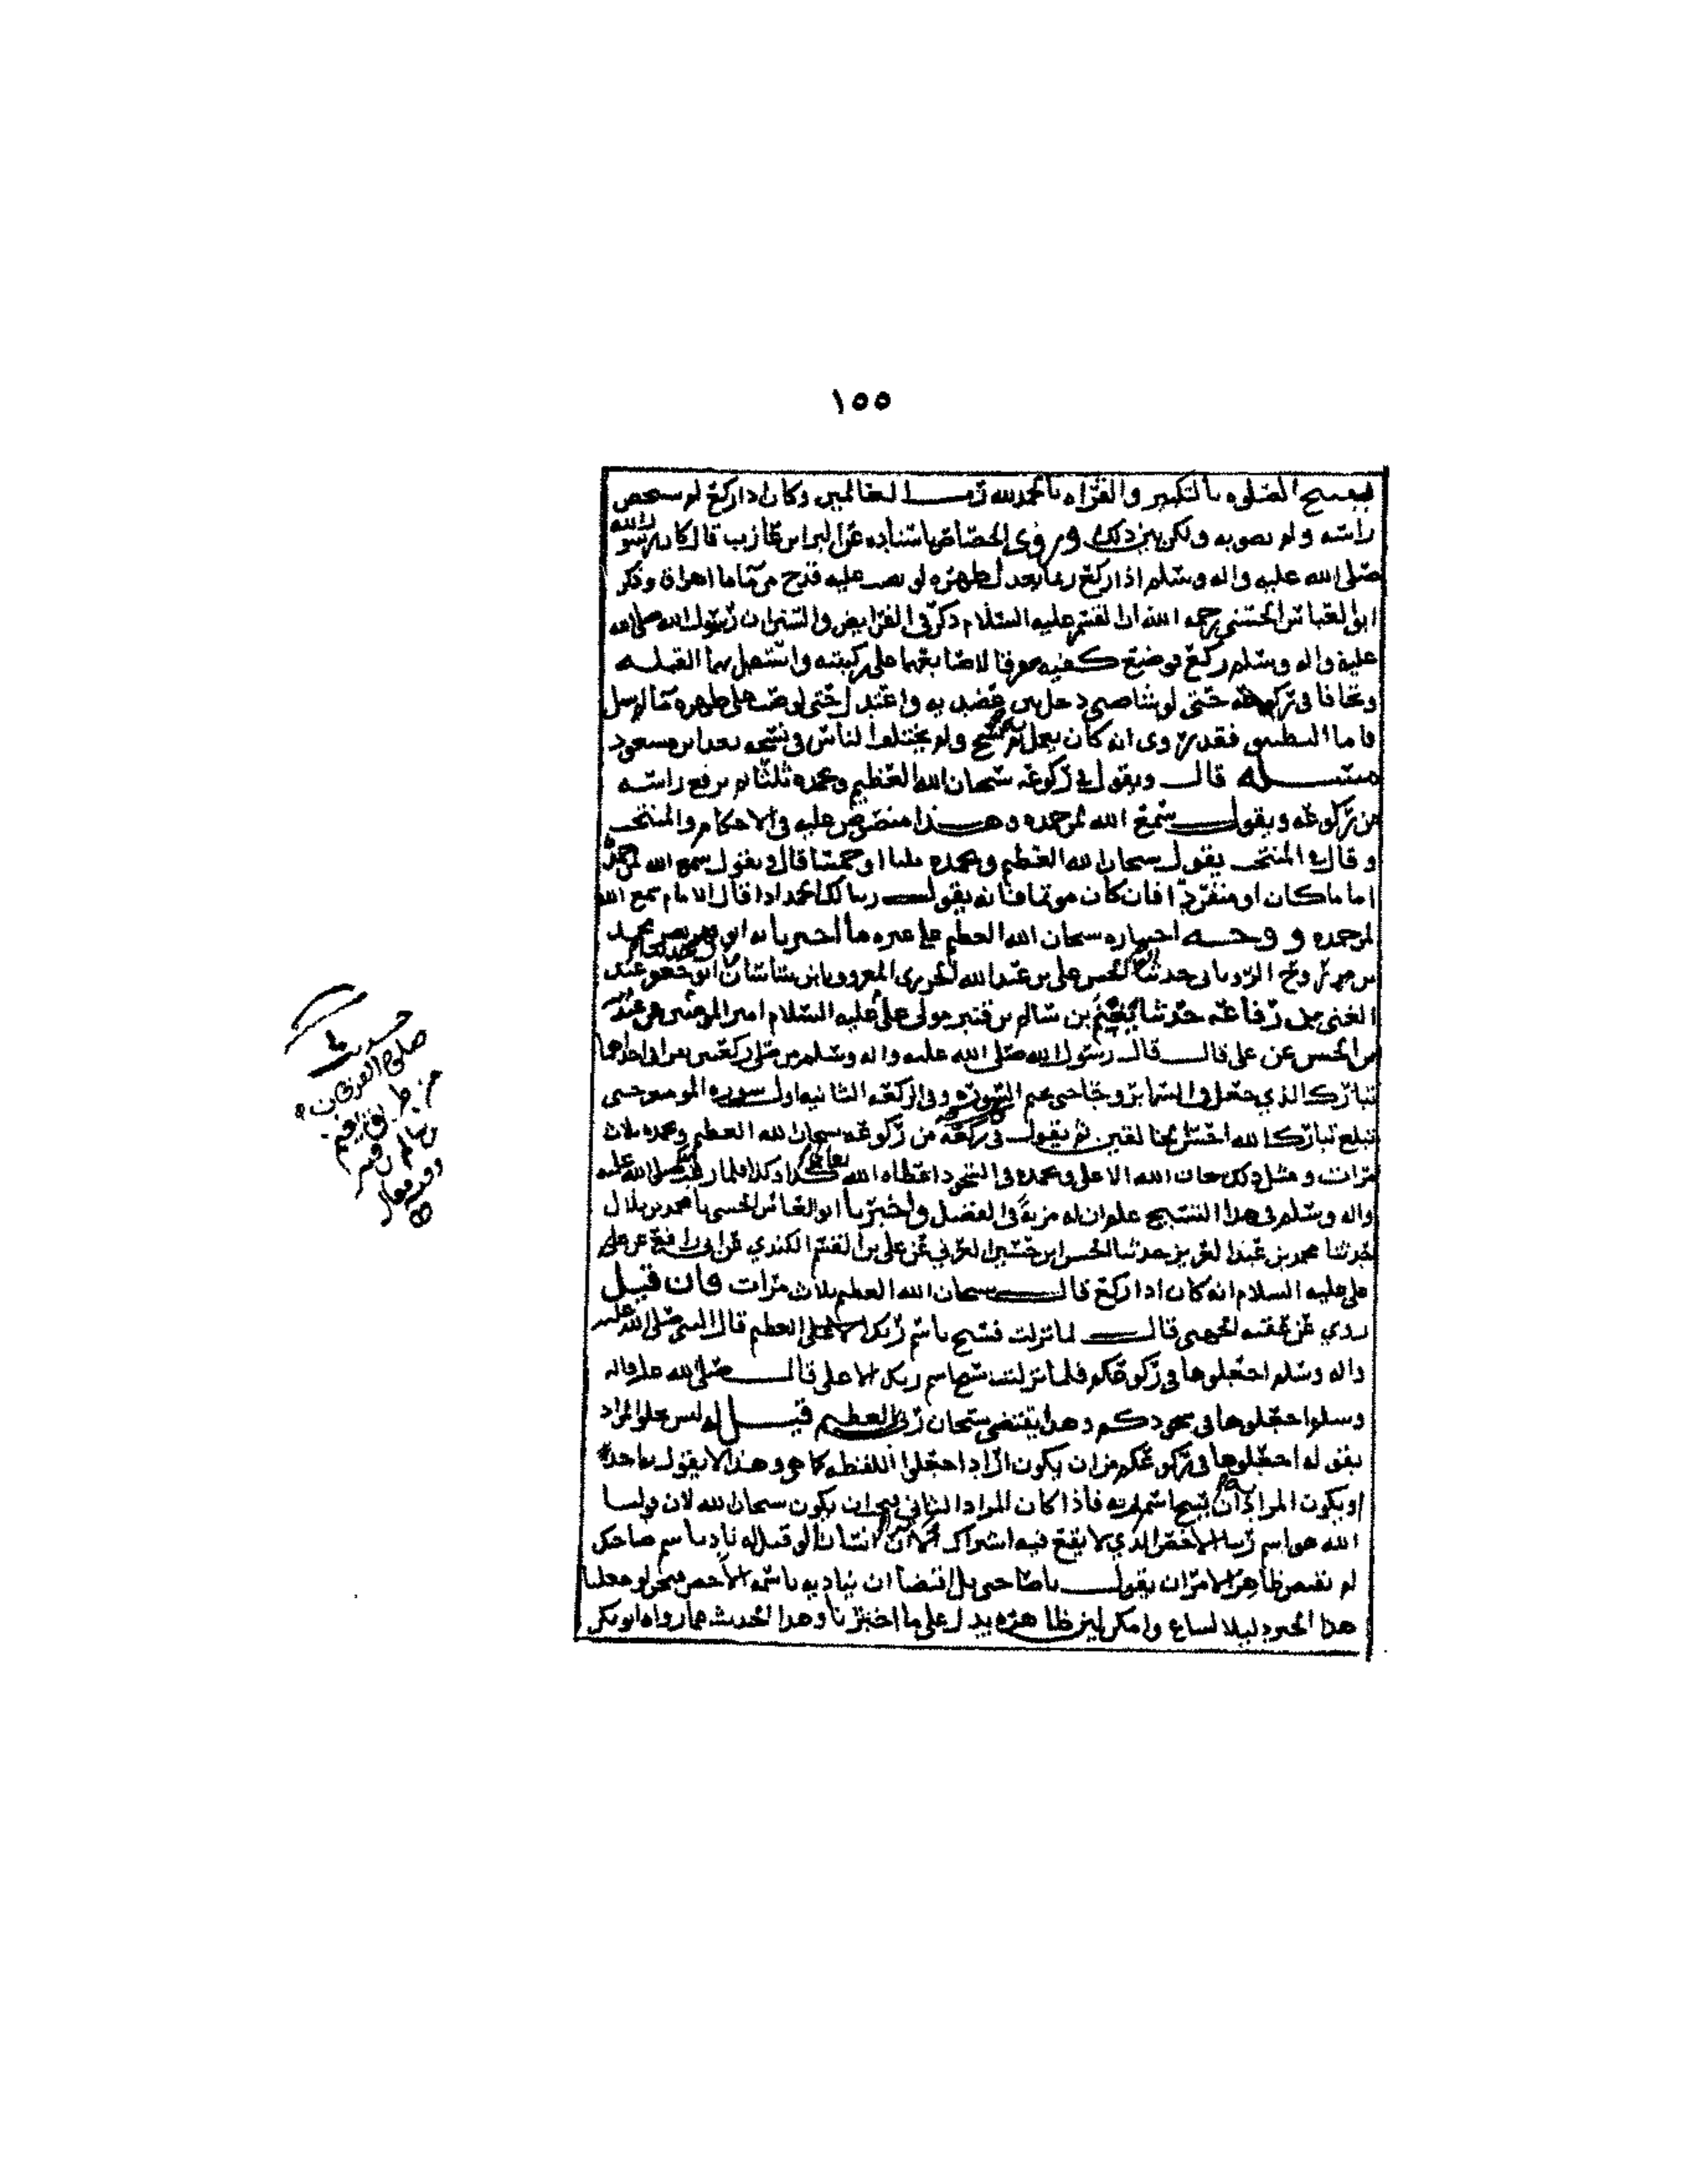 ١٥٥
الصلوه بالتكبير والقراه بالحمد لله رب العالمين وكان اذا ركع لم يشخص
راسه ولم يصوبه ولكن بين ذلك وروى الجصاص باسناده عن البراء بن عازب قال كان رسول الله
صلى الله عليه واله وسلم اذا ركع لو صب عليه قدح من ما ما اهراق وذكر
ابو العباس الحسني رحمه الله ان القسم عليه السلام ذكر في الفرايض والسنن ان رسول الله صلى الله
عليه واله وسلم ركع فوضع كفيه مفرقا لاصابعهما على ركبتيه واستقبل بهما القبله
وتجافا في ركوعه حتى لو شا صبي دخل بين عضديه واعتدل حتى لو صب على ظهره ما لم يسل
فاما التطبيق فقد روي انه كان يعمل ثم نسخ ولم يختلف الناس في نسخه بعد ابن مسعود
مسئله قال ويقول في ركوعه سبحان الله العظيم وبحمده ثلثا ثم يرفع راسه
من ركوعه ويقول سمع الله لمن حمده وهذا منصوص عليه في الاحكام والمنتخب
وقال في المنتخب يقول سبحان الله العظيم وبحمده ثلثا او خمسا قال ويقول سمع الله لمن حمده
اماما كان او منفردا فان كان موتما فانه يقول ربنا لك الحمد اذا قال الامام سمع الله
لمن حمده و وجه اختياره سبحان الله العظيم على غيره ما اخبرنا به ابو
حدثنا الحسن علي بن عبد الله المعروف بابن ابو جعفر عبد
الغني بن رفاعه حدثنا بن سالم بن قنبر مولى علي عليه السلام امير المومنين عن
بن الحسن عن علي قال قال رسول الله صلى الله عليه واله وسلم من صلى ركعتين يقرا في احداهما
تبارك الذي جعل في السما بروجا حتى يختم السوره وفي الركعه الثانيه اول سوره المومنين حتى
تبلغ تبارك الله احسن الخالقين ثم يقول في ركعه من ركوعه سبحان الله العظيم وبحمده ثلاث
مرات ومثل ذلك سبحان الله الاعلى وبحمده في السجود اعطاه الله كذا وكذا فلما رغب صلى الله عليه
واله وسلم في هذا التسبيح علم ان له مزية في الفضل واخبرنا ابو العباس الحسني نا محمد بن بلال
حدثنا محمد بن عبد العزيز حدثنا الحسن ابن حسين العرني عن علي بن القسم الكندي عن ابي رافع عن علي
عليه السلام انه كان اذا ركع قال سبحان الله العظيم ثلاث مرات فان قيل
روي عن عقبه الجهني قال لما نزلت فسبح باسم ربك العظيم قال النبي صلى الله عليه
واله وسلم اجعلوها في ركوعكم فلما نزلت سبح اسم ربك الاعلى قال صلى الله عليه واله
وسلم اجعلوها في سجودكم وهذا يقتضي سبحان ربي العظيم قيل له ليس يخلو المراد
بقوله اجعلوها في ركوعكم من ان يكون اراد اجعلوا اللفظه كما هي وهذا لا يقول به احد
او يكون المراد ان يسبح باسم ربه فاذا كان المراد الثاني يجب ان يكون سبحان الله لان قولنا
الله هو اسم ربنا الاخص الذي لا يقع فيه اشتراك الا ان انسانا لو قيل له ناد باسم صاحبك
لم يقتض ظاهر الامر ان يقول يا صاحبي بل اقتضا ان يناديه باسمه الاخص فنحن لو جعلنا
هذا الخبر دليلا لساغ وامكن لان ظاهره يدل على ما اخترنا وهذا الحديث مما رواه ابو بكر
حديث
صلوة الفرقان
من طريق
بن سالم بن قنبر
وفيه مقال